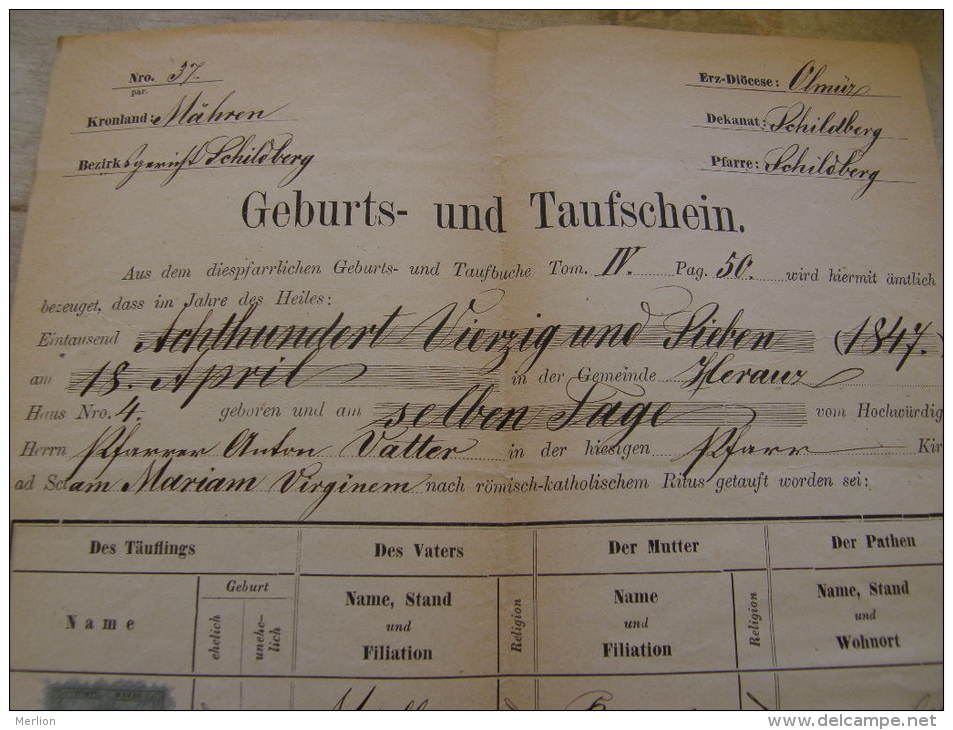 Nro. 37.
par.
Kronland: Mähren
Bezirksgericht Schildberg
Erz-Diöcese: Olmüz
Dekanat: Schildberg
Pfarre: Schildberg
Geburts- und Taufschein.
Aus dem diespfarrlichen Geburts- und Taufbuche Tom. IV. Pag. 50. wird hiermit ämtlich
bezeuget, dass im Jahre des Heiles:
Eintausend Achthundert Vierzig und Sieben (1847.)
am 18. April in der Gemeinde Herauz
Haus Nro. 4. geboren und am selben Tage vom Hochwürdig
Herrn Pfarrer Anton Vatter in der hiesigen Pfarr Kir
ad Sctam Mariam Virginem nach römisch-katholischem Ritus getauft worden sei:
Des Täuflings Des Vaters Der Mutter Der Pathen
Name
Geburt
ehelich
unehe-
lich
Name, Stand
und
Filiation
Religion
Name
und
Filiation
Religion
Name, Stand
und
Wohnort
Merlion
http://www.delcampe.net